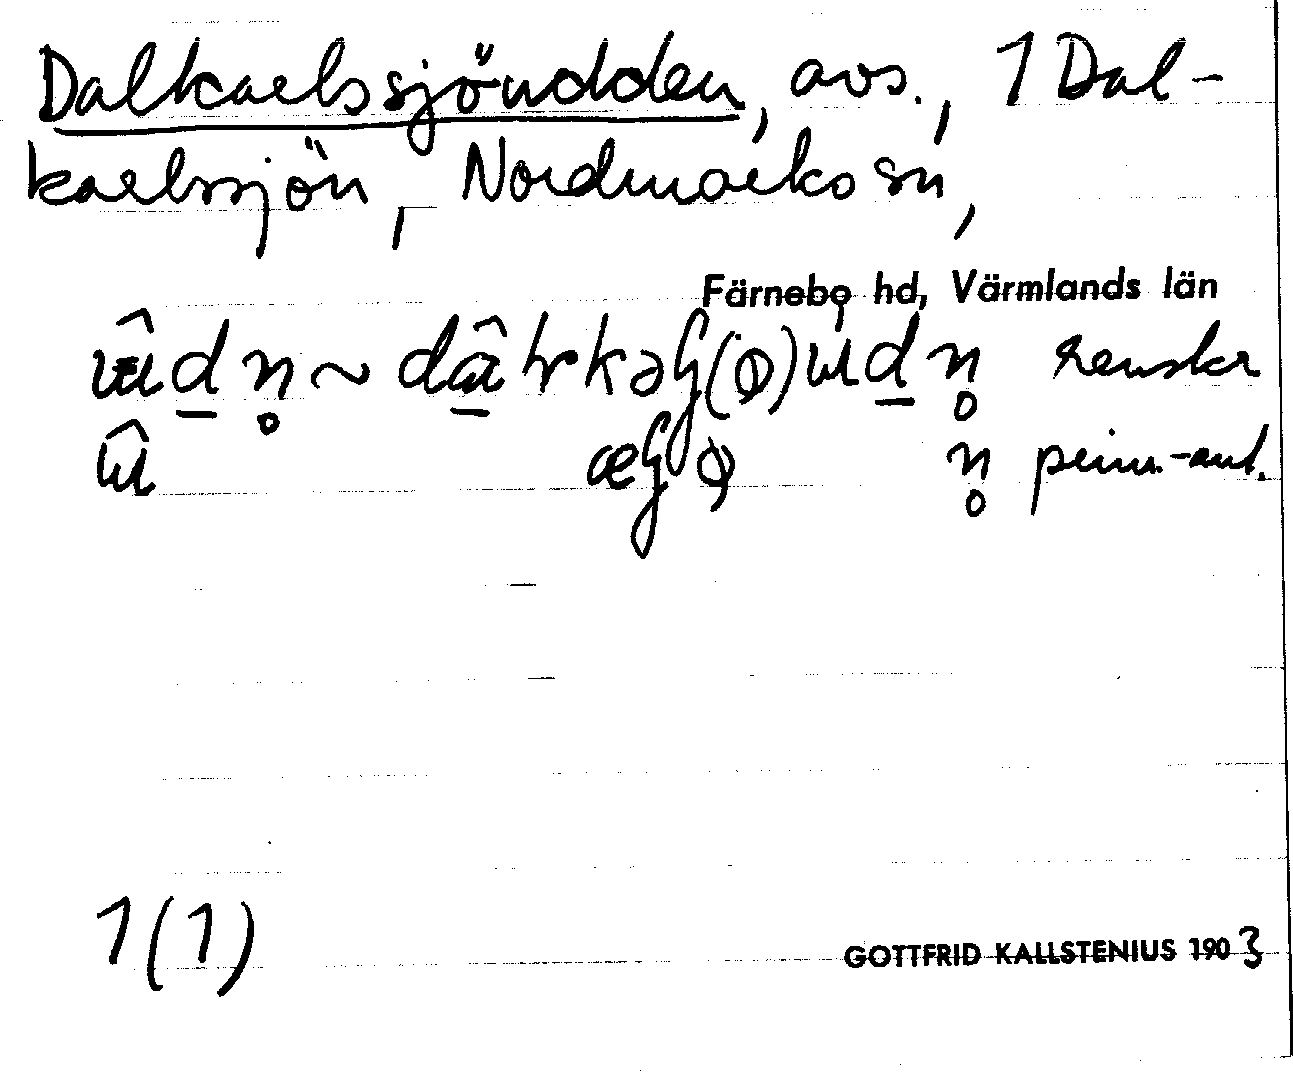 Dalkarlssjöudden, avs., 1 Dal-
karlssjön, Nordmarks sn,
Färnebo hd, Värmlands län
renskr
prim.-ant.
1(1)
GOTTFRID KALLSTENIUS 1903